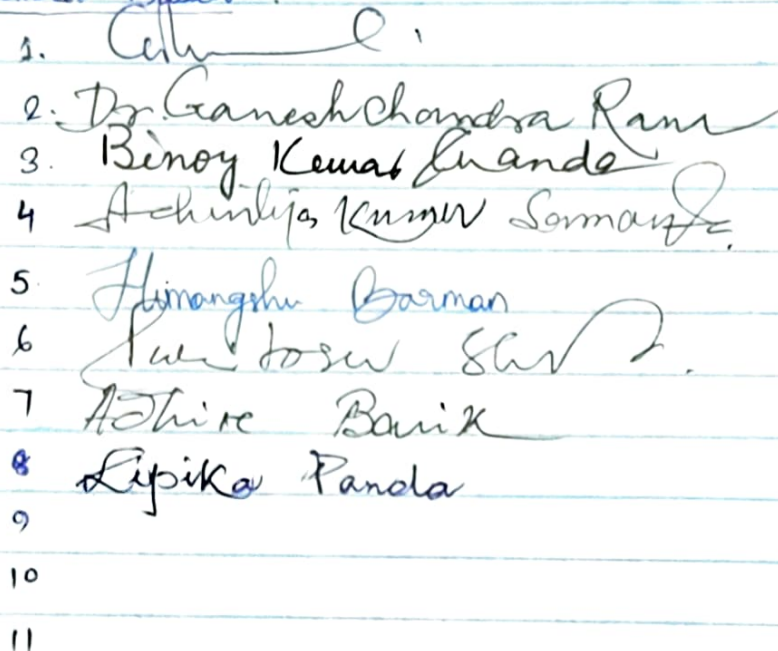 1.
2. Dr. Ganesh Chandra Rana
3. Binoy Kumar Chanda
4 Achintya Kumar Samanta
5 Himangshu Barman
6
7 Adhire Barik
8 Lipika Panda
9
10
11